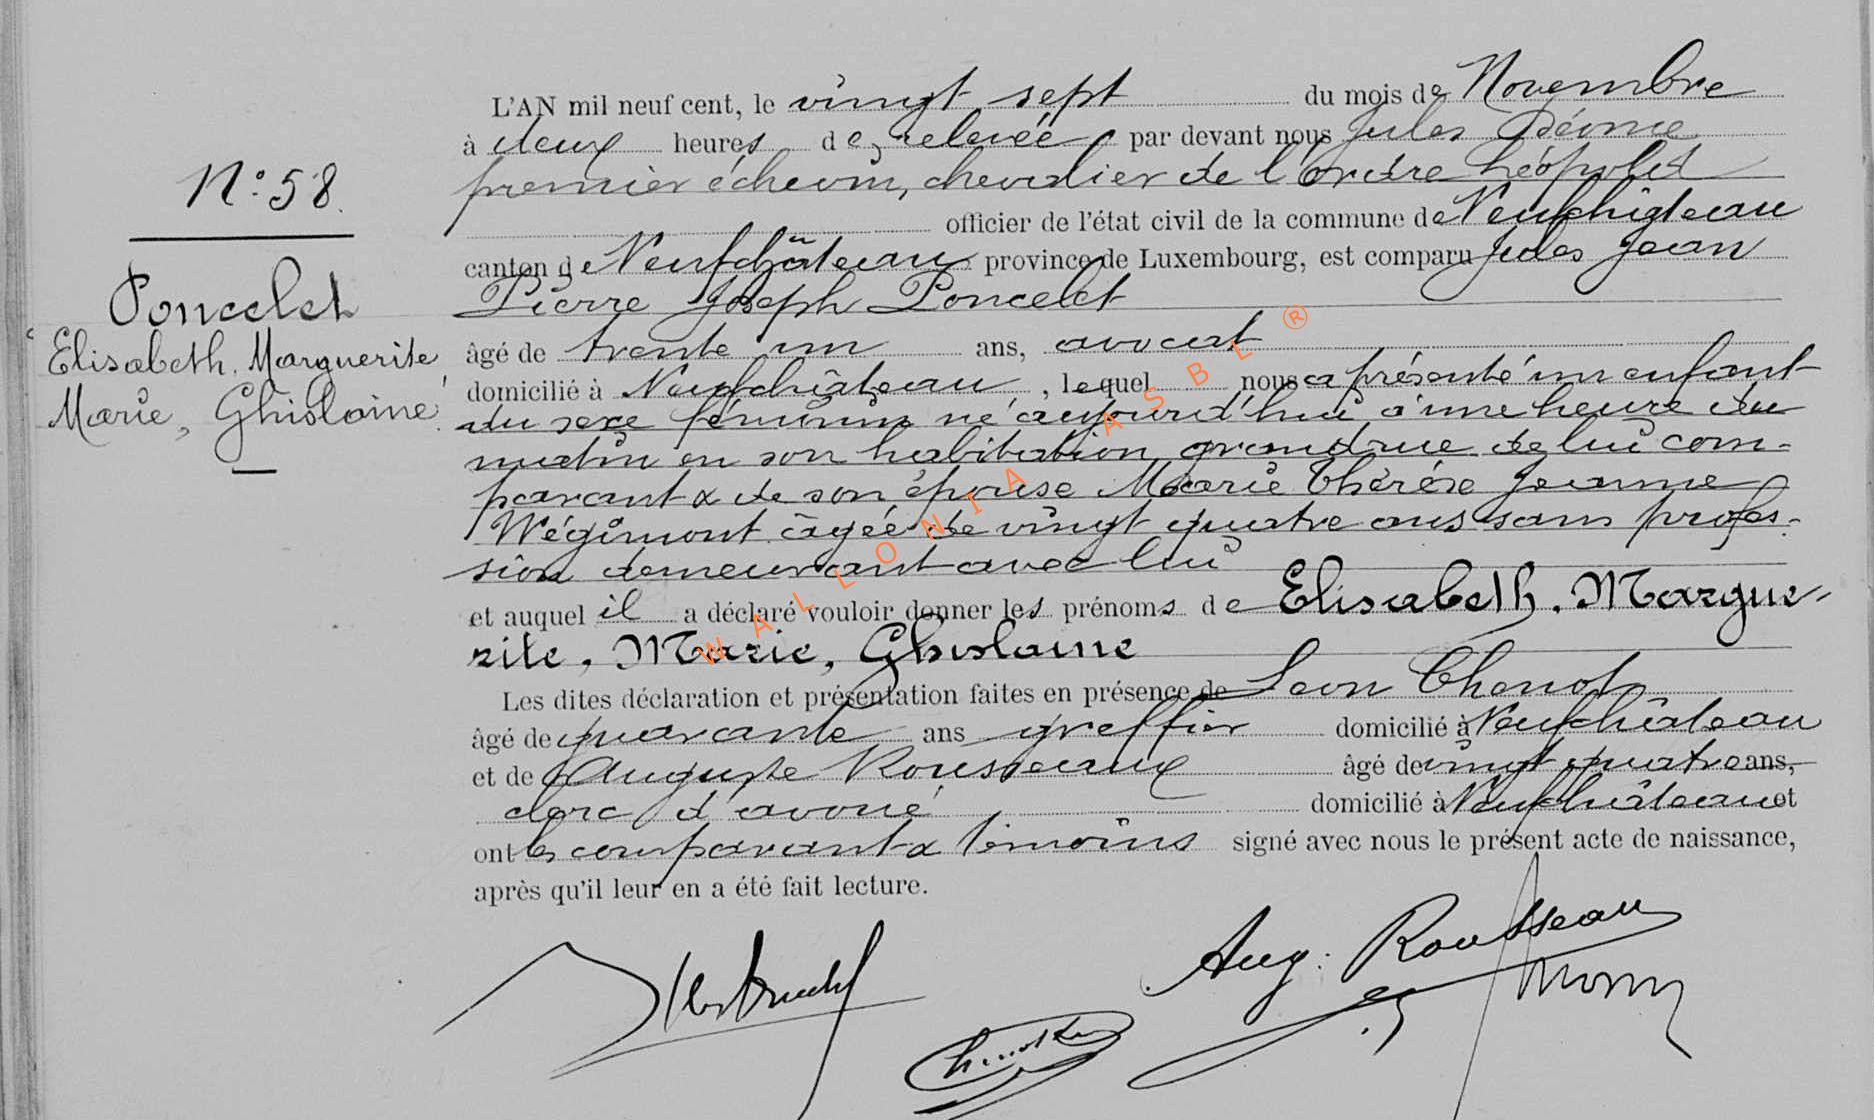 N° 58.
Poncelet
Elisabeth, Marguerite,
Marie, Ghislaine.
L'AN mil neuf cent, le vingt sept du mois de Novembre
à deux heures de relevée, par devant nous Jules
premier échevin, chevalier de l'Ordre Léopold
officier de l'état civil de la commune de Neufchâteau
canton de Neufchâteau province de Luxembourg, est comparu Jules Jean
Pierre Joseph Poncelet
âgé de trente un ans, avocat
domicilié à Neufchâteau, lequel nous a présenté un enfant
du sexe féminin né aujourd'hui à une heure du
matin en son habitation, grand'rue de lui com-
parant & de son épouse Marie Thérèse Jeanne
Wégimont âgée de vingt quatre ans sans profes-
sion demeurant avec lui
et auquel il a déclaré vouloir donner les prénoms de Elisabeth, Margue-
rite, Marie, Ghislaine
Les dites déclaration et présentation faites en présence de Léon Chenot
âgé de quarante ans greffier domicilié à Neufchâteau
et de Auguste Rousseaux âgé de vingt quatre ans,
clerc d'avoué domicilié à Neufchâteau et
ont les comparant & témoins signé avec nous le présent acte de naissance,
après qu'il leur en a été fait lecture.
Aug: Rousseaux
WALLONIA ASBL ®